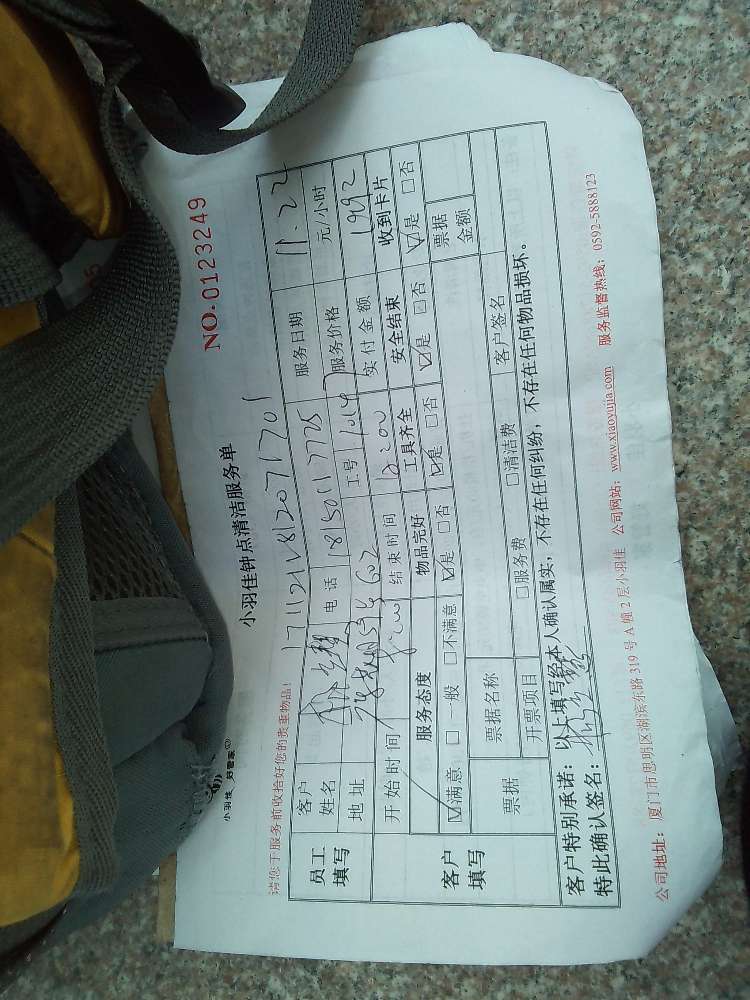 小羽佳 好管家
小羽佳钟点清洁服务单
NO.0123249
请您于服务前收拾好您的贵重物品！
171121V812071701
员工填写
客户姓名
服务日期 11.22
电话 18150117725
服务价格 元/小时
地址 602
工号
实付金额 1992
开始时间
结束时间 12:00
客户填写
服务态度 物品完好 工具齐全 安全结束 收到卡片
☑满意 □一般 □不满意 ☑是 □否 ☑是 □否 ☑是 □否 ☑是 □否
票据 票据名称 客户签名 票据金额
开票项目 □服务费 □清洁费
客户特别承诺：以上填写经本人确认属实，不存在任何纠纷，不存在任何物品损坏。
特此确认签名：
公司地址：厦门市思明区湖滨东路 319 号 A 幢 2 层小羽佳 公司网站：www.xiaoyujia.com 服务监督热线：0592-5888123